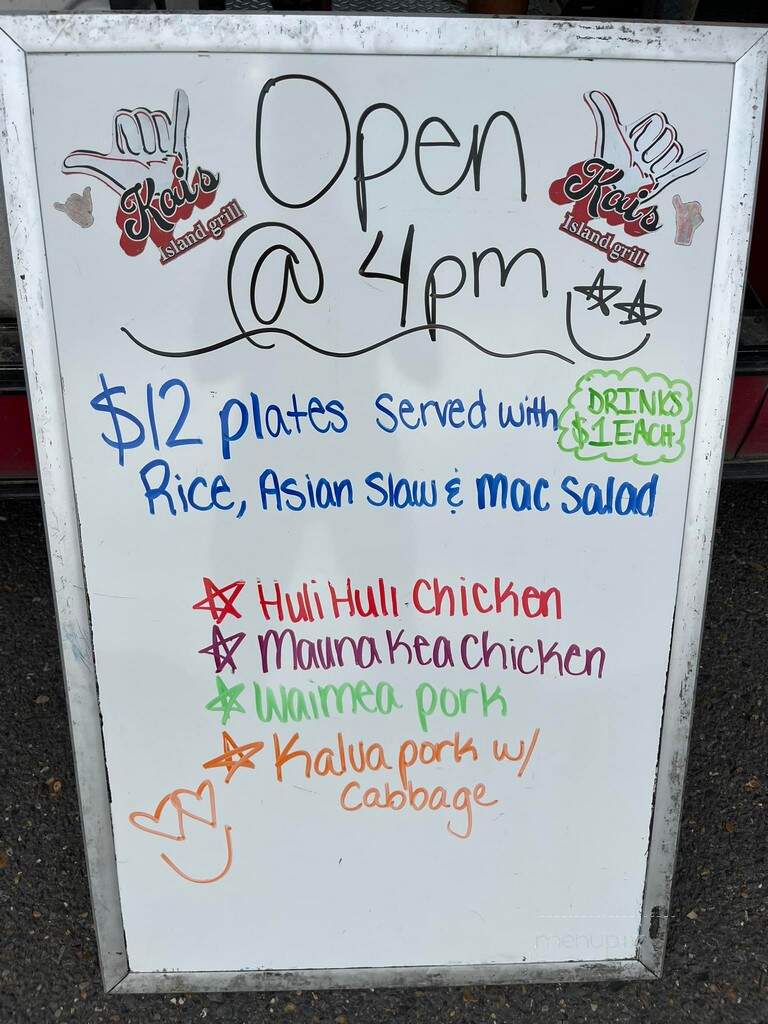 Kai's
Island grill
Open
@ 4pm
Kai's
Island grill
$12 plates served with
DRINKS
$1 EACH
Rice, Asian Slaw & Mac Salad
Huli Huli Chicken
Mauna Kea Chicken
Waimea pork
Kalua pork w/
Cabbage